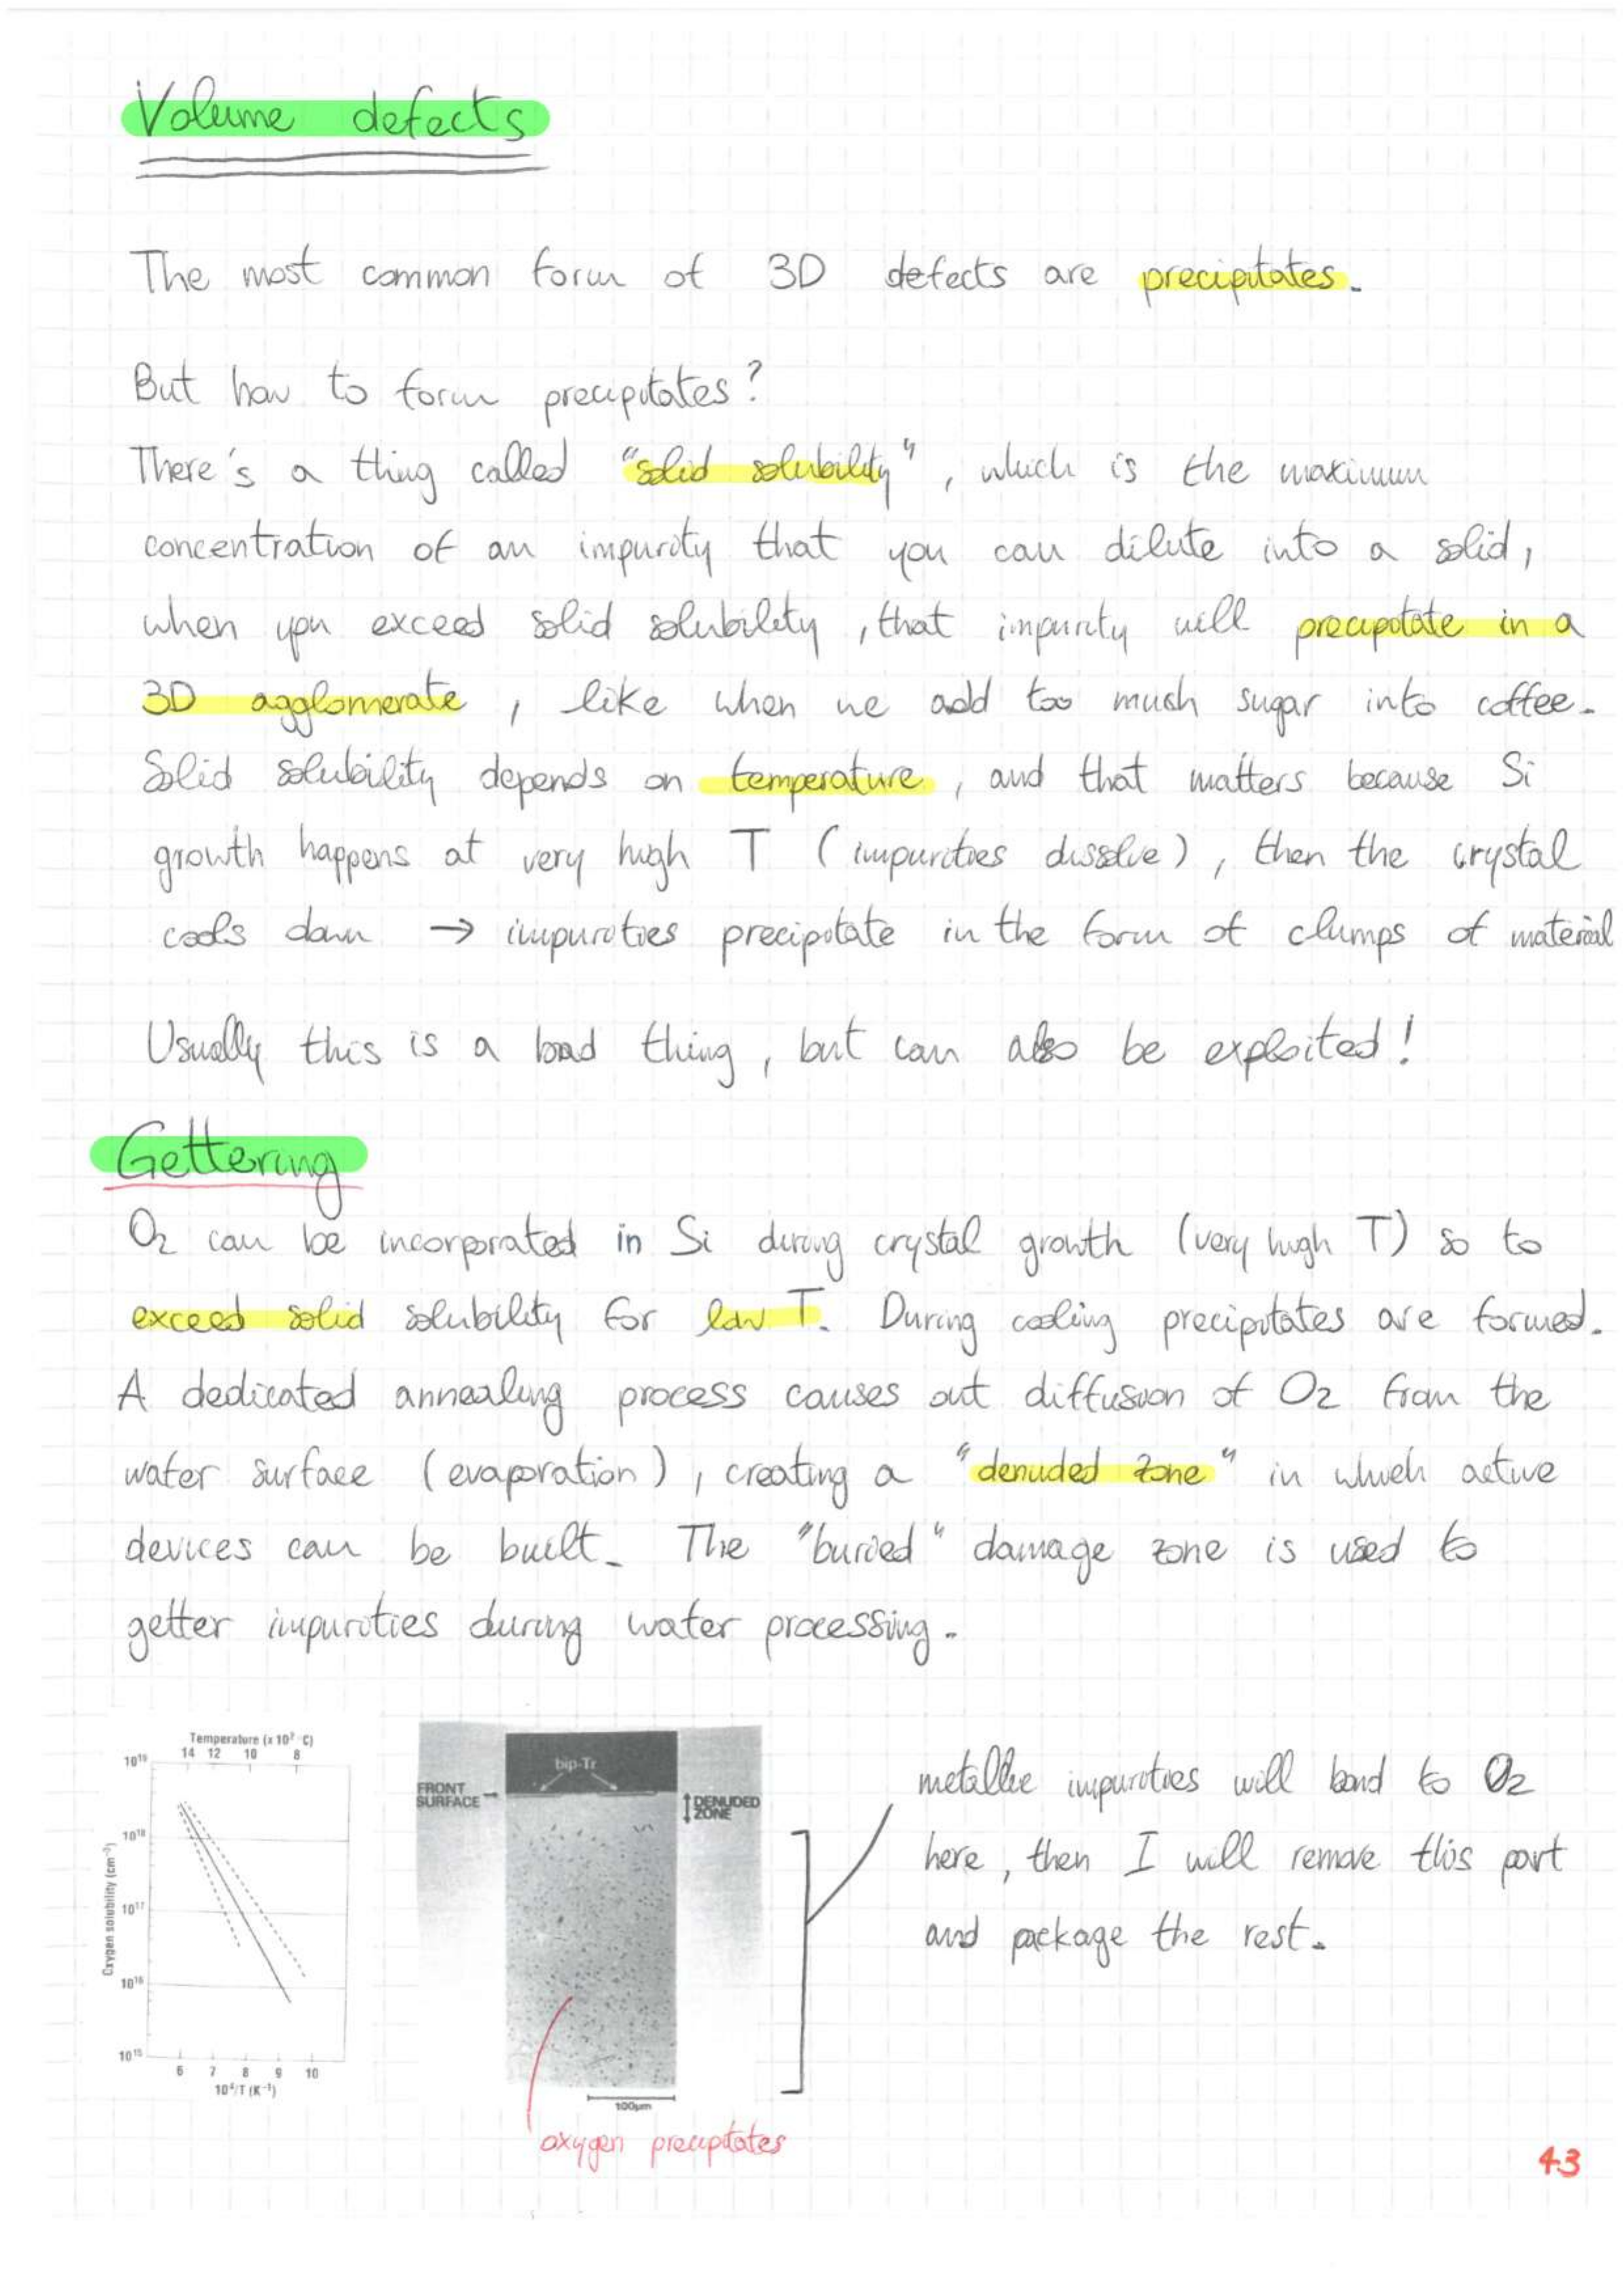 Volume defects
The most common form of 3D defects are precipitates.
But how to form precipitates?
There's a thing called "solid solubility", which is the maximum
concentration of an impurity that you can dilute into a solid,
when you exceed solid solubility, that impurity will precipitate in a
3D agglomerate, like when we add too much sugar into coffee.
Solid solubility depends on temperature, and that matters because Si
growth happens at very high T (impurities dissolve), then the crystal
cools down → impurities precipitate in the form of clumps of material
Usually this is a bad thing, but can also be exploited!
Gettering
O2 can be incorporated in Si during crystal growth (very high T) so to
exceed solid solubility for low T. During cooling precipitates are formed.
A dedicated annealing process causes out diffusion of O2 from the
wafer surface (evaporation), creating a "denuded zone" in which active
devices can be built. The "buried" damage zone is used to
getter impurities during wafer processing.
Temperature (x 10² °C)
14 12 10 8
10¹⁹
10¹⁸
10¹⁷
10¹⁶
10¹⁵
Oxygen solubility (cm⁻³)
6 7 8 9 10
10⁴/T (K⁻¹)
bip-Tr
FRONT
SURFACE
DENUDED
ZONE
100µm
oxygen precipitates
metallic impurities will bond to O2
here, then I will remove this part
and package the rest.
43